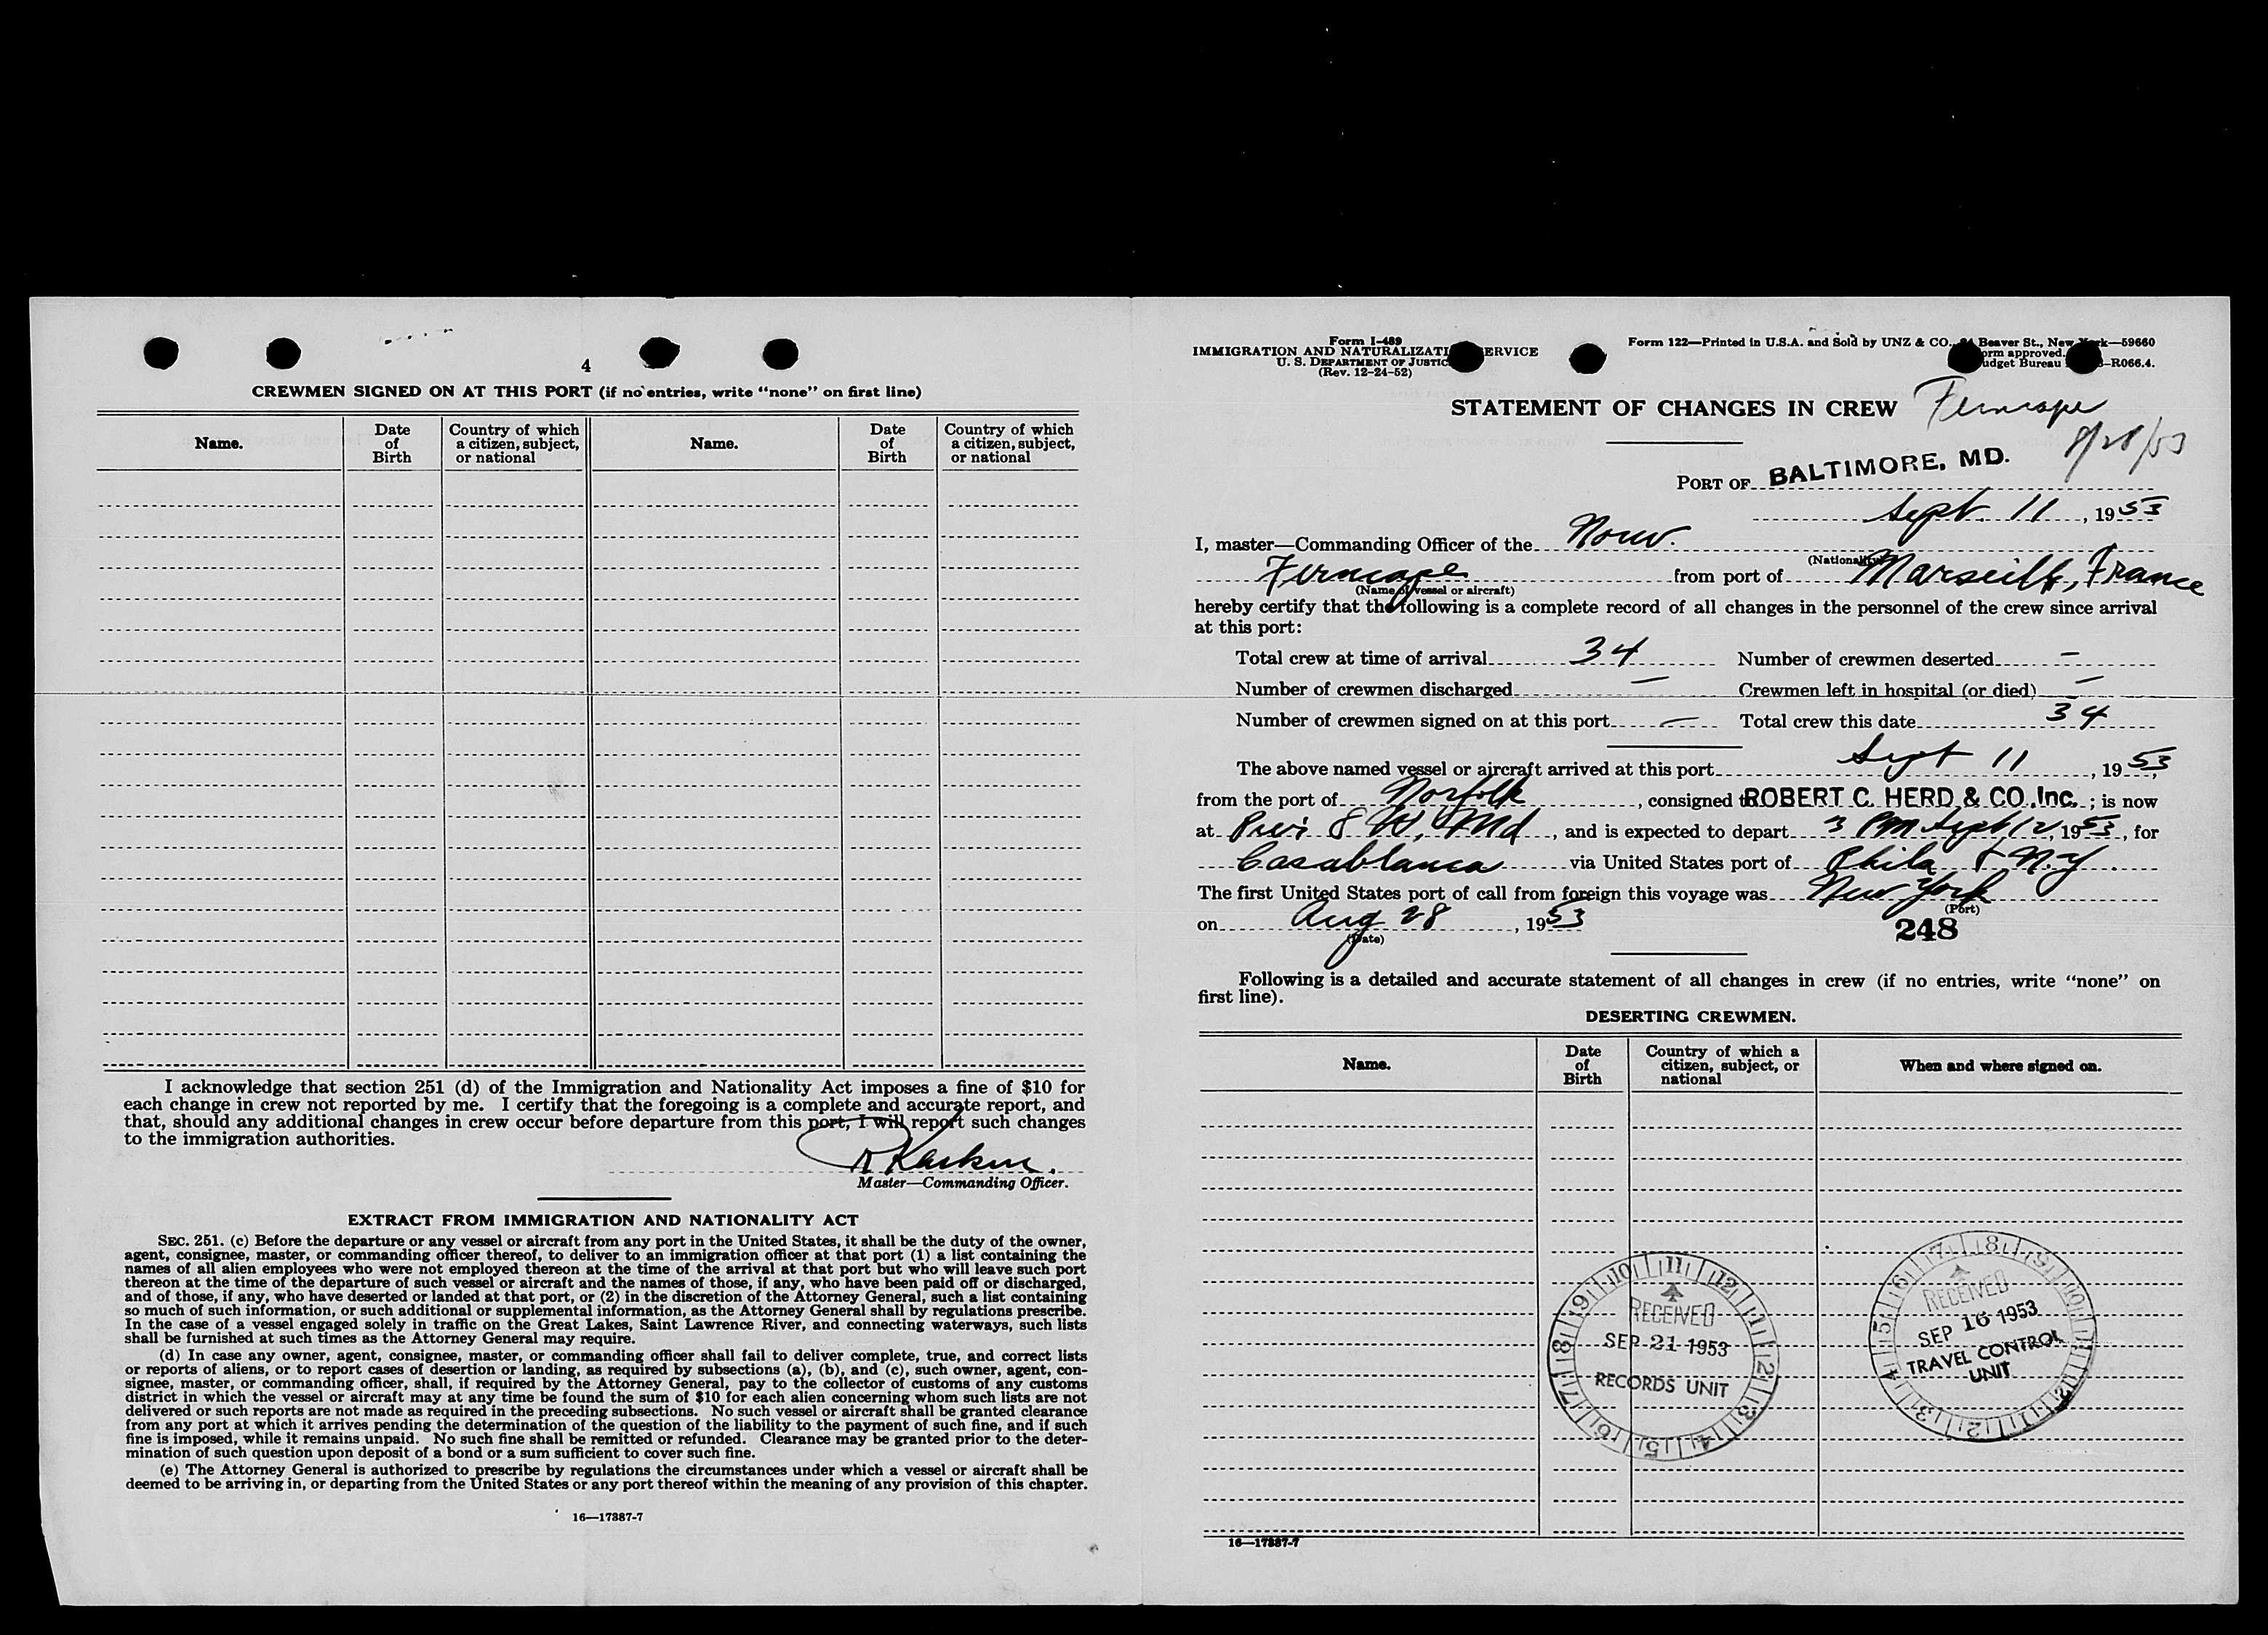 4
CREWMEN SIGNED ON AT THIS PORT (if no entries, write “none” on first line)
Name.
Date of Birth
Country of which a citizen, subject, or national
Name.
Date of Birth
Country of which a citizen, subject, or national
I acknowledge that section 251 (d) of the Immigration and Nationality Act imposes a fine of $10 for
each change in crew not reported by me. I certify that the foregoing is a complete and accurate report, and
that, should any additional changes in crew occur before departure from this port, I will report such changes
to the immigration authorities.
Master—Commanding Officer.
EXTRACT FROM IMMIGRATION AND NATIONALITY ACT
SEC. 251. (c) Before the departure or any vessel or aircraft from any port in the United States, it shall be the duty of the owner,
agent, consignee, master, or commanding officer thereof, to deliver to an immigration officer at that port (1) a list containing the
names of all alien employees who were not employed thereon at the time of the arrival at that port but who will leave such port
thereon at the time of the departure of such vessel or aircraft and the names of those, if any, who have been paid off or discharged,
and of those, if any, who have deserted or landed at that port, or (2) in the discretion of the Attorney General, such a list containing
so much of such information, or such additional or supplemental information, as the Attorney General shall by regulations prescribe.
In the case of a vessel engaged solely in traffic on the Great Lakes, Saint Lawrence River, and connecting waterways, such lists
shall be furnished at such times as the Attorney General may require.
(d) In case any owner, agent, consignee, master, or commanding officer shall fail to deliver complete, true, and correct lists
or reports of aliens, or to report cases of desertion or landing, as required by subsections (a), (b), and (c), such owner, agent, con-
signee, master, or commanding officer, shall, if required by the Attorney General, pay to the collector of customs of any customs
district in which the vessel or aircraft may at any time be found the sum of $10 for each alien concerning whom such lists are not
delivered or such reports are not made as required in the preceding subsections. No such vessel or aircraft shall be granted clearance
from any port at which it arrives pending the determination of the question of the liability to the payment of such fine, and if such
fine is imposed, while it remains unpaid. No such fine shall be remitted or refunded. Clearance may be granted prior to the deter-
mination of such question upon deposit of a bond or a sum sufficient to cover such fine.
(e) The Attorney General is authorized to prescribe by regulations the circumstances under which a vessel or aircraft shall be
deemed to be arriving in, or departing from the United States or any port thereof within the meaning of any provision of this chapter.
16—17387-7
Form I-489
IMMIGRATION AND NATURALIZATI ERVICE
U. S. DEPARTMENT OF JUSTIC
(Rev. 12-24-52)
Form 122—Printed in U.S.A. and Sold by UNZ & CO., Beaver St., New k—59660
orm approved.
udget Bureau -R066.4.
STATEMENT OF CHANGES IN CREW Ferncape
8/28/53
PORT OF BALTIMORE, MD.
Sept. 11, 1953
I, master—Commanding Officer of the Norw.
(Nationality)
Ferncape from port of Marseille, France
(Name of vessel or aircraft)
hereby certify that the following is a complete record of all changes in the personnel of the crew since arrival
at this port:
Total crew at time of arrival 34 Number of crewmen deserted —
Number of crewmen discharged — Crewmen left in hospital (or died) —
Number of crewmen signed on at this port — Total crew this date 34
The above named vessel or aircraft arrived at this port Sept 11, 1953,
from the port of Norfolk, consigned t ROBERT C. HERD & CO., Inc. ; is now
at Pier 8 W, Md, and is expected to depart 3 PM Sept 12, 1953, for
Casablanca via United States port of Phila & N.Y.
The first United States port of call from foreign this voyage was New York
(Port)
on Aug 28, 1953
(Date)
248
Following is a detailed and accurate statement of all changes in crew (if no entries, write “none” on
first line).
DESERTING CREWMEN.
Name.
Date of Birth
Country of which a citizen, subject, or national
When and where signed on.
RECEIVED
SEP 21 1953
RECORDS UNIT
RECEIVED
SEP 16 1953
TRAVEL CONTROL
UNIT
16—17387-7